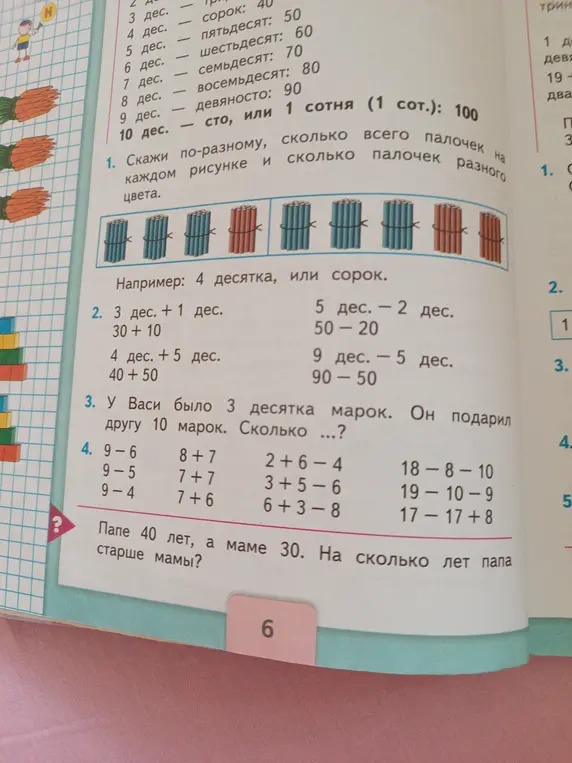 Н
3 дес. —
4 дес. — сорок: 40
5 дес. — пятьдесят: 50
6 дес. — шестьдесят: 60
7 дес. — семьдесят: 70
8 дес. — восемьдесят: 80
9 дес. — девяносто: 90
10 дес. — сто, или 1 сотня (1 сот.): 100
1. Скажи по-разному, сколько всего палочек на
каждом рисунке и сколько палочек разного
цвета.
Например: 4 десятка, или сорок.
2. 3 дес. + 1 дес. 5 дес. − 2 дес.
30 + 10 50 − 20
4 дес. + 5 дес. 9 дес. − 5 дес.
40 + 50 90 − 50
3. У Васи было 3 десятка марок. Он подарил
другу 10 марок. Сколько ...?
4. 9 − 6 8 + 7 2 + 6 − 4 18 − 8 − 10
9 − 5 7 + 7 3 + 5 − 6 19 − 10 − 9
9 − 4 7 + 6 6 + 3 − 8 17 − 17 + 8
? Папе 40 лет, а маме 30. На сколько лет папа
старше мамы?
6
1
19
два
1.
2.
1
3.
4.
5